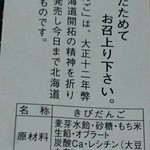 だためて
お召上り下さい。
ご」は、大正十二年弊
海道開拓の精神を折り
発売し今日まで北海道
ものです。
名称 きびだんご
原材料 麦芽水飴・砂糖・もち米
生餡・オブラート
炭酸Ca・レシチン（大豆